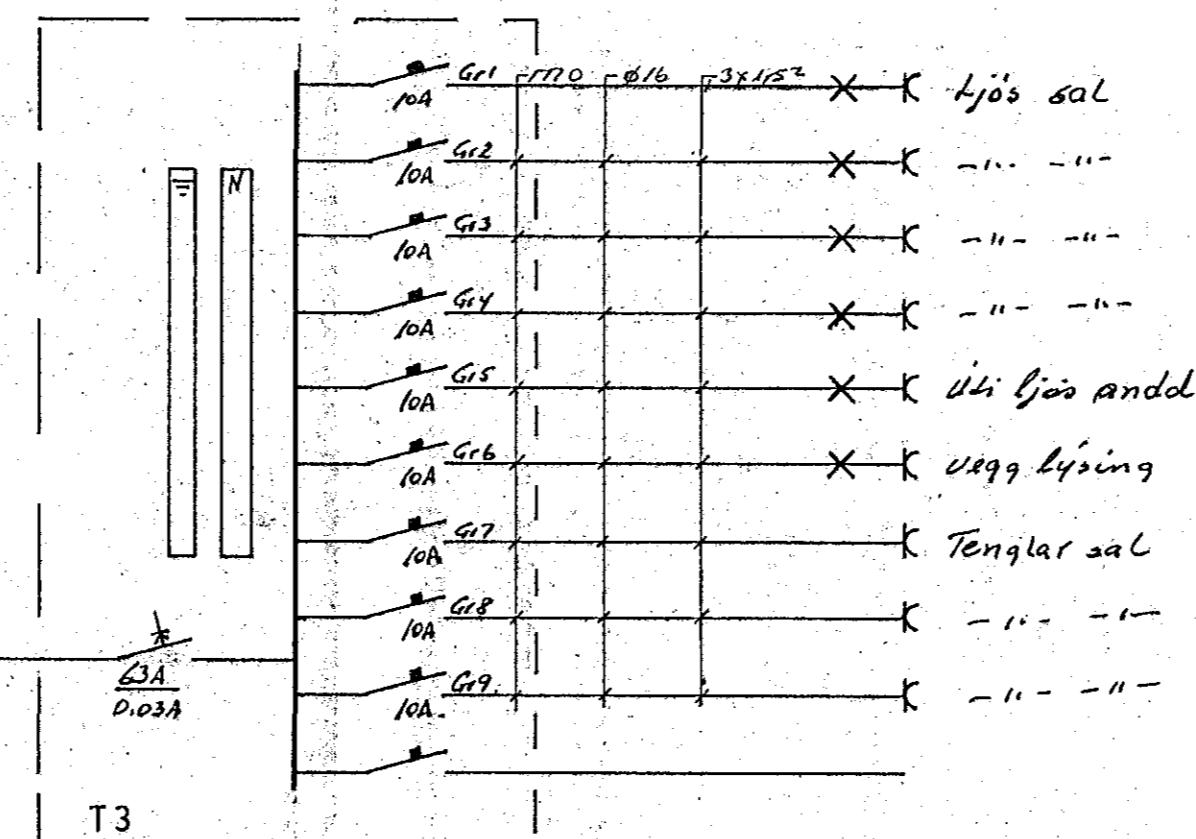 Gr1 ┌TTO ┌ø16 ┌3x1,5² Ljós sal
10A
N
Gr2 -"- -"-
10A
Gr3 -"- -"-
10A
Gr4 -"- -"-
10A
Gr5 Úti ljós andd
10A
Gr6 Vegg lýsing
10A
Gr7 Tenglar sal
10A
Gr8 -"- -"-
10A
63A
0.03A
Gr9. -"- -"-
10A.
T3